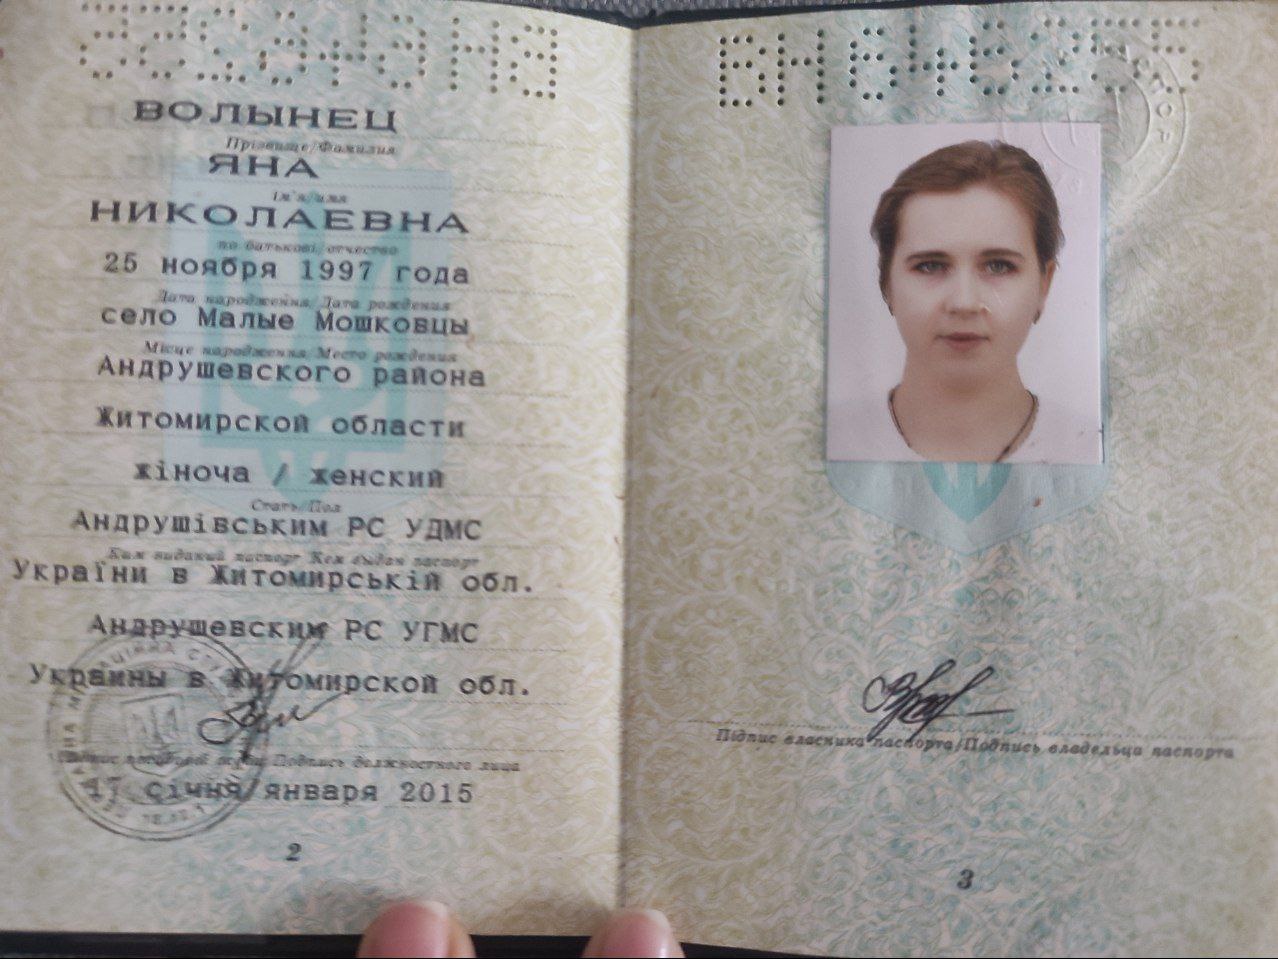 ВОЛЫНЕЦ
Прізвище/Фамилия
ЯНА
ім'я/имя
НИКОЛАЕВНА
по батькові/отчество
25 ноября 1997 года
Дата народження/Дата рождения
село Малые Мошковцы
Місце народження/Место рождения
Андрушевского района
Житомирской области
жіноча / женский
Стать/Пол
Андрушівським РС УДМС
Ким виданий паспорт/Кем выдан паспорт
України в Житомирській обл.
Андрушевским РС УГМС
Украины в Житомирской обл.
Підпис посадової особи/Подпись должностного лица
17 січня/января 2015
2
ВН645255
Підпис власника паспорта/Подпись владельца паспорта
3